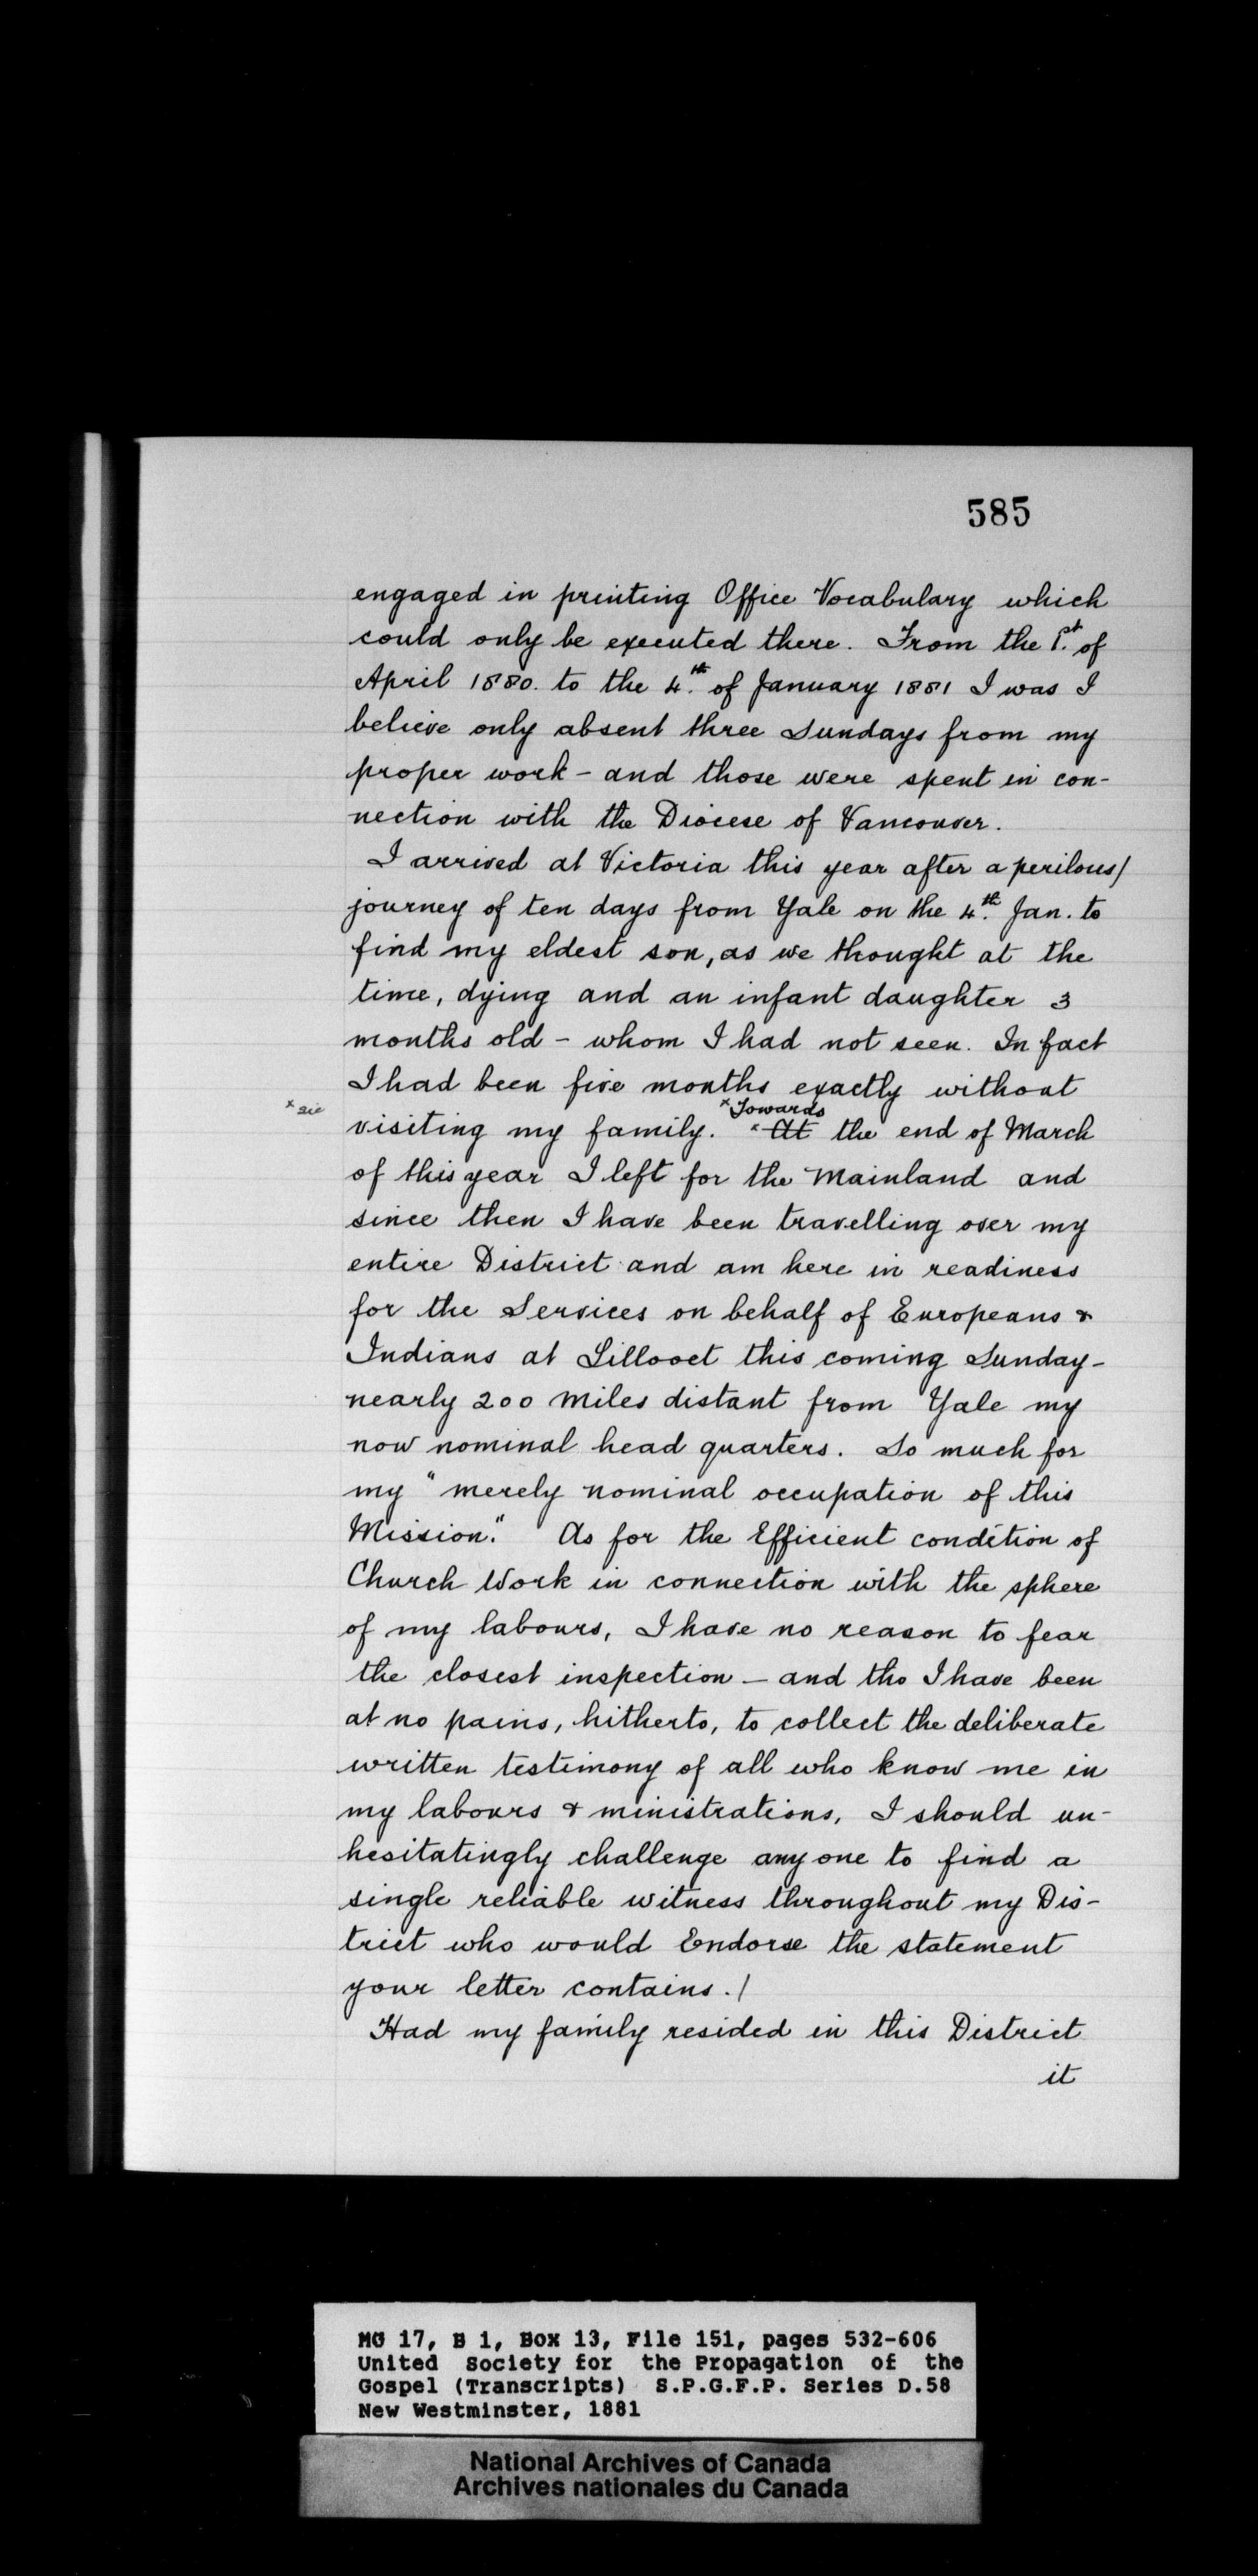 585
engaged in printing Office Vocabulary which
could only be executed there. From the 1st. of
April 1880. to the 4th. of January 1881 I was I
believe only absent three Sundays from my
proper work - and those were spent in con-
nection with the Diocese of Vancouver.
I arrived at Victoria this year after a perilous/
journey of ten days from Yale on the 4th. Jan. to
find my eldest son, as we thought at the
time, dying and an infant daughter 3
months old - whom I had not seen. In fact
I had been five months exactly without
x Towards
x sic
visiting my family. x At the end of March
of this year I left for the Mainland and
since then I have been travelling over my
entire District and am here in readiness
for the Services on behalf of Europeans &
Indians at Lillooet this coming Sunday -
nearly 200 miles distant from Yale my
now nominal head quarters. So much for
my "merely nominal occupation of this
Mission." As for the Efficient condition of
Church Work in connection with the sphere
of my labours, I have no reason to fear
the closest inspection - and tho I have been
at no pains, hitherto, to collect the deliberate
written testimony of all who know me in
my labours & ministrations, I should un-
hesitatingly challenge any one to find a
single reliable witness throughout my Dis-
trict who would Endorse the statement
your letter contains./
Had my family resided in this District
it
MG 17, B 1, Box 13, File 151, pages 532-606
United Society for the Propagation of the
Gospel (Transcripts) S.P.G.F.P. Series D.58
New Westminster, 1881
National Archives of Canada
Archives nationales du Canada